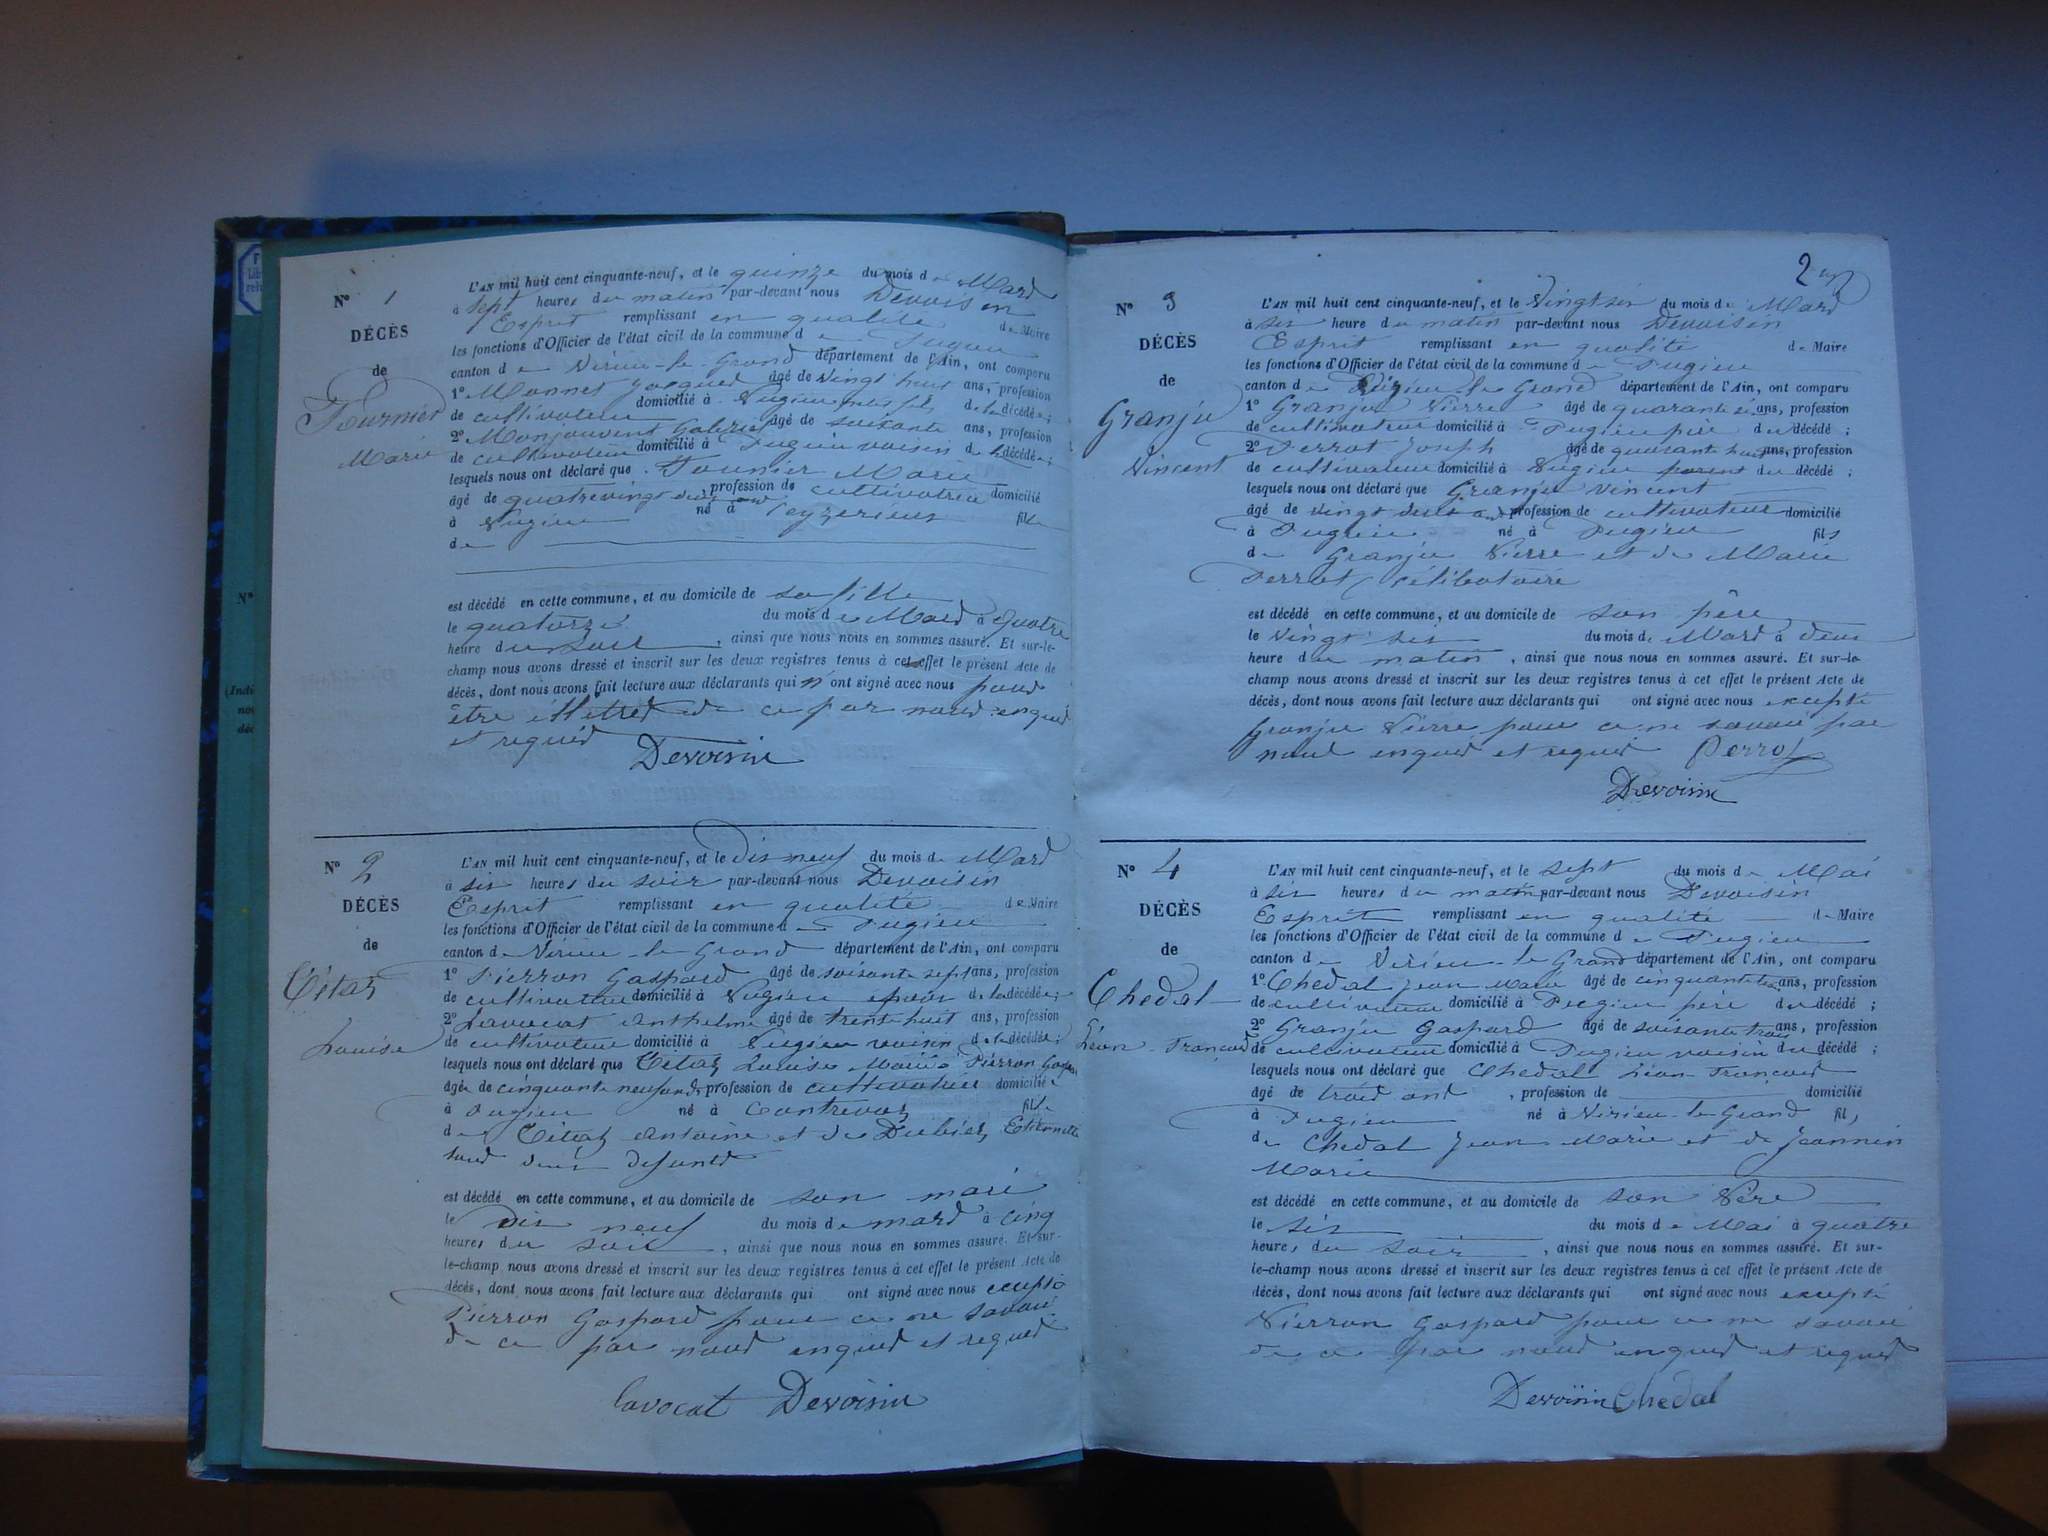 N° 1
DÉCÈS
de
Fournier
Marie
L'AN mil huit cent cinquante-neuf, et le quinze du mois de Mard
à sept heures du matin par-devant nous Devoisin
Esprit remplissant en qualité de Maire
les fonctions d'Officier de l'état civil de la commune de Pugieu
canton de Virieu-le-Grand département de l'Ain, ont comparu
1° Monnet Jacques âgé de vingt huit ans, profession
de cultivateur domicilié à Pugieu petit fils de la décédée;
2° Monjouvent Gabriel âgé de soixante ans, profession
de cultivateur domicilié à Pugieu voisin de la décédée;
lesquels nous ont déclaré que Fournier Marie
âgé de quatrevingt deux ans profession de cultivatrice domicilié
à Pugieu né à Peyzerieux fille
de
est décédé en cette commune, et au domicile de sa fille
le quatorze du mois de Mard à quatre
heure du soir, ainsi que nous nous en sommes assuré. Et sur-le-
champ nous avons dressé et inscrit sur les deux registres tenus à cet effet le présent Acte de
décès, dont nous avons fait lecture aux déclarants qui n'ont signé avec nous pour
être illettred de ce par noud enquid
et requid
Devoisin
N° 2
DÉCÈS
de
Cétaz
Louise
L'AN mil huit cent cinquante-neuf, et le dix neuf du mois de Mard
à six heures du soir par-devant nous Devoisin
Esprit remplissant en qualité de Maire
les fonctions d'Officier de l'état civil de la commune de Pugieu
canton de Virieu-le-Grand département de l'Ain, ont comparu
1° Pierron Gaspard âgé de soixante sept ans, profession
de cultivateur domicilié à Pugieu époux de la décédée;
2° Lavocat Anthelme âgé de trente huit ans, profession
de cultivateur domicilié à Pugieu voisin de la décédée;
lesquels nous ont déclaré que Cétaz Louise Mariée à Pierron Gaspard
âgée de cinquante neuf ans profession de cultivateur domicilié
à Pugieu né à Contrevoz fille
de Cétaz Antoine et de Dubiez Etiennette
toud deux defuntd
est décédé en cette commune, et au domicile de son mari
le dix neuf du mois de mard à cinq
heures du soir, ainsi que nous nous en sommes assuré. Et sur-
le-champ nous avons dressé et inscrit sur les deux registres tenus à cet effet le présent Acte de
décès, dont nous avons fait lecture aux déclarants qui ont signé avec nous excepté
Pierron Gaspard pour ce ne savoir
de ce par noud enquid et requid
Lavocat Devoisin
2
N° 3
DÉCÈS
de
Granju
Vincent
L'AN mil huit cent cinquante-neuf, et le Vingt six du mois de Mard
à six heure du matin par-devant nous Devoisin
Esprit remplissant en qualité de Maire
les fonctions d'Officier de l'état civil de la commune de Pugieu
canton de Virieu-le-Grand département de l'Ain, ont comparu
1° Granju Pierre âgé de quarante six ans, profession
de cultivateur domicilié à Pugieu père du décédé;
2° Perrot Joseph âgé de quarante huit ans, profession
de cultivateur domicilié à Pugieu parent du décédé;
lesquels nous ont déclaré que Granju Vincent
âgé de vingt deux ans profession de cultivateur domicilié
à Pugieu né à Pugieu fils
de Granju Pierre et de Marie
Perrot célibataire
est décédé en cette commune, et au domicile de son père
le vingt six du mois de Mard à deux
heure du matin, ainsi que nous nous en sommes assuré. Et sur-le-
champ nous avons dressé et inscrit sur les deux registres tenus à cet effet le présent Acte de
décès, dont nous avons fait lecture aux déclarants qui ont signé avec nous excepté
Granju Pierre pour ce ne savoir par
noud enquid et requid Perrot
Devoisin
N° 4
DÉCÈS
de
Chedal
Léon-Francoid
L'AN mil huit cent cinquante-neuf, et le sept du mois de Mai
à six heures du matin par-devant nous Devoisin
Esprit remplissant en qualité de Maire
les fonctions d'Officier de l'état civil de la commune de Pugieu
canton de Virieu-le-Grand département de l'Ain, ont comparu
1° Chedal Jean Marie âgé de cinquante ans, profession
de cultivateur domicilié à Pugieu père du décédé;
2° Granju Gaspard âgé de soixante trois ans, profession
de cultivateur domicilié à Pugieu voisin du décédé;
lesquels nous ont déclaré que Chedal Léon-Francoid
âgé de troid and, profession de domicilié
à Pugieu né à Virieu-le-Grand fils
de Chedal Jean Marie et de Jeannin
Marie
est décédé en cette commune, et au domicile de son Père
le six du mois de Mai à quatre
heures du soir, ainsi que nous nous en sommes assuré. Et sur-
le-champ nous avons dressé et inscrit sur les deux registres tenus à cet effet le présent Acte de
décès, dont nous avons fait lecture aux déclarants qui ont signé avec nous excepté
Pierron Gaspard pour ce ne savoir
de ce par noud enquid et requid
Devoisin Chedal